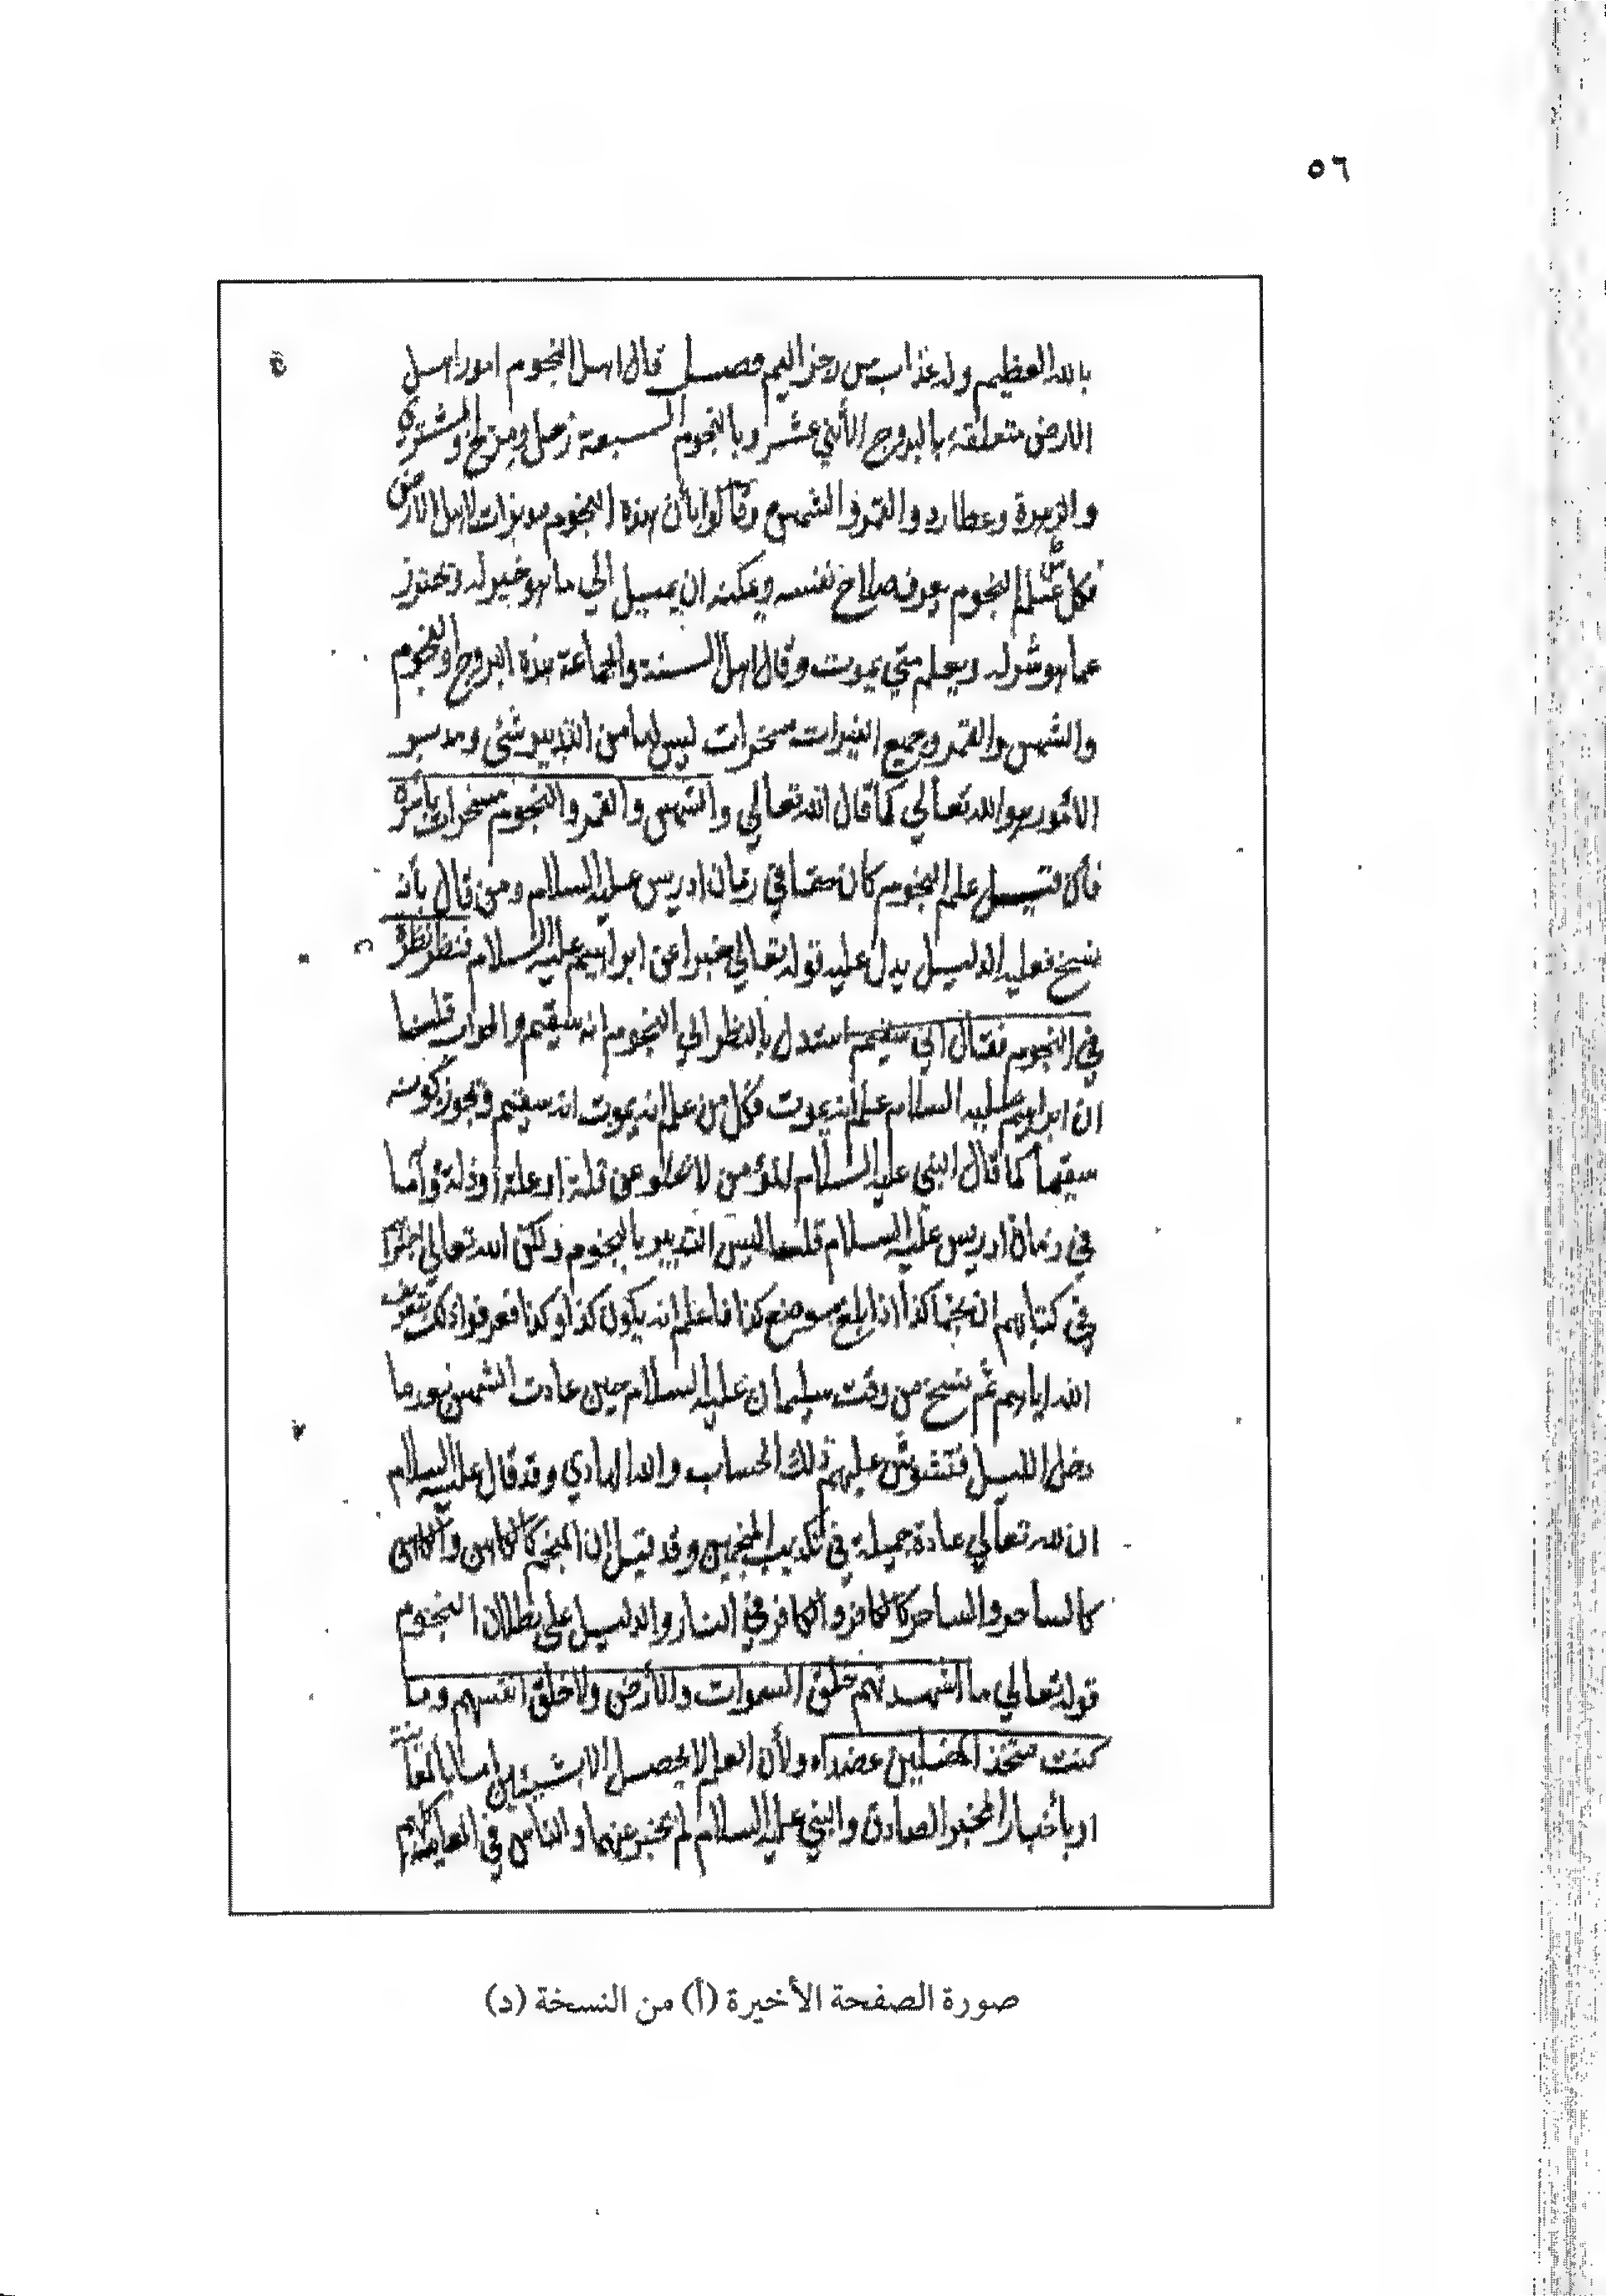 ٥٦
بالله العظيم وله عذاب من رجز اليم فصل قال اهل النجوم امور اهل
الارض متعلقة بالبروج الأثني عشر وبالنجوم السبعة زحل ومريخ والمشتري
والزهرة وعطارد والقمر والشمس وقالوا بأن هذه النجوم مدبرات لاهل الأرض
فكل من علم النجوم يعرف صلاح نفسه ويمكنه ان يميل الي ما هو خير له وتحترز
عما هو شر له ويعلم متي يموت وقال اهل السنة والجماعة هذه البروج والنجوم
والشمس والقمر وجميع النيرات مسخرات ليس لها من التدبير شئ ومدبر
الأمور هو الله تعالي كما قال الله تعالي والشمس والقمر والنجوم مسخرات بأمره
فأن قيل علم النجوم كان حقا في زمان ادريس عليه السلام ومن قال بأنه
نسخ فعليه الدليل يدل عليه قوله تعالي خبرا عن ابراهيم عليه السلام فنظر نظرة
في النجوم فقال اني سقيم استدل بالنظر الي النجوم انه سقيم والجواب قلنا
ان ابراهيم عليه السلام علم انه يموت فكل من علم انه يموت انه سقيم وتجوز كونه
سقيما كما قال النبي عليه السلام المؤمن لا تخلو عن قلة او علة أو ذلة وأما
في زمان ادريس عليه السلام قلنا ليس التدبير بالنجوم ولكن الله تعالي
في كتابهم ان نجما كذا اذا بلغ موضع كذا فاعلم انه يكون كذا وكذا فعرفوا ذلك
الله اياهم ثم نسخ من وقت سليمان عليه السلام حين عادت الشمس بعد ما
دخل الليل فتشوش عليهم ذلك الحساب والله الهادي وقد قال عليه السلام
ان لله تعالي عادة جميلة في تكذيب المنجمين وقد قيل ان المنجم كالكاهن والكاهن
كالساحر والساحر كالكافر والكافر في النار والدليل علي بطلان النجوم
قوله تعالي ما اشهدتهم خلق السموات والأرض ولا خلق انفسهم وما
كنت متخذ المضلين عضداه ولأن العلم لا يحصل الا بشيئين اما
او بأخبار المخبر الصادق والنبي عليه السلام لم يخبر عنهما والناس في
صورة الصفحة الأخيرة (أ) من النسخة (د)